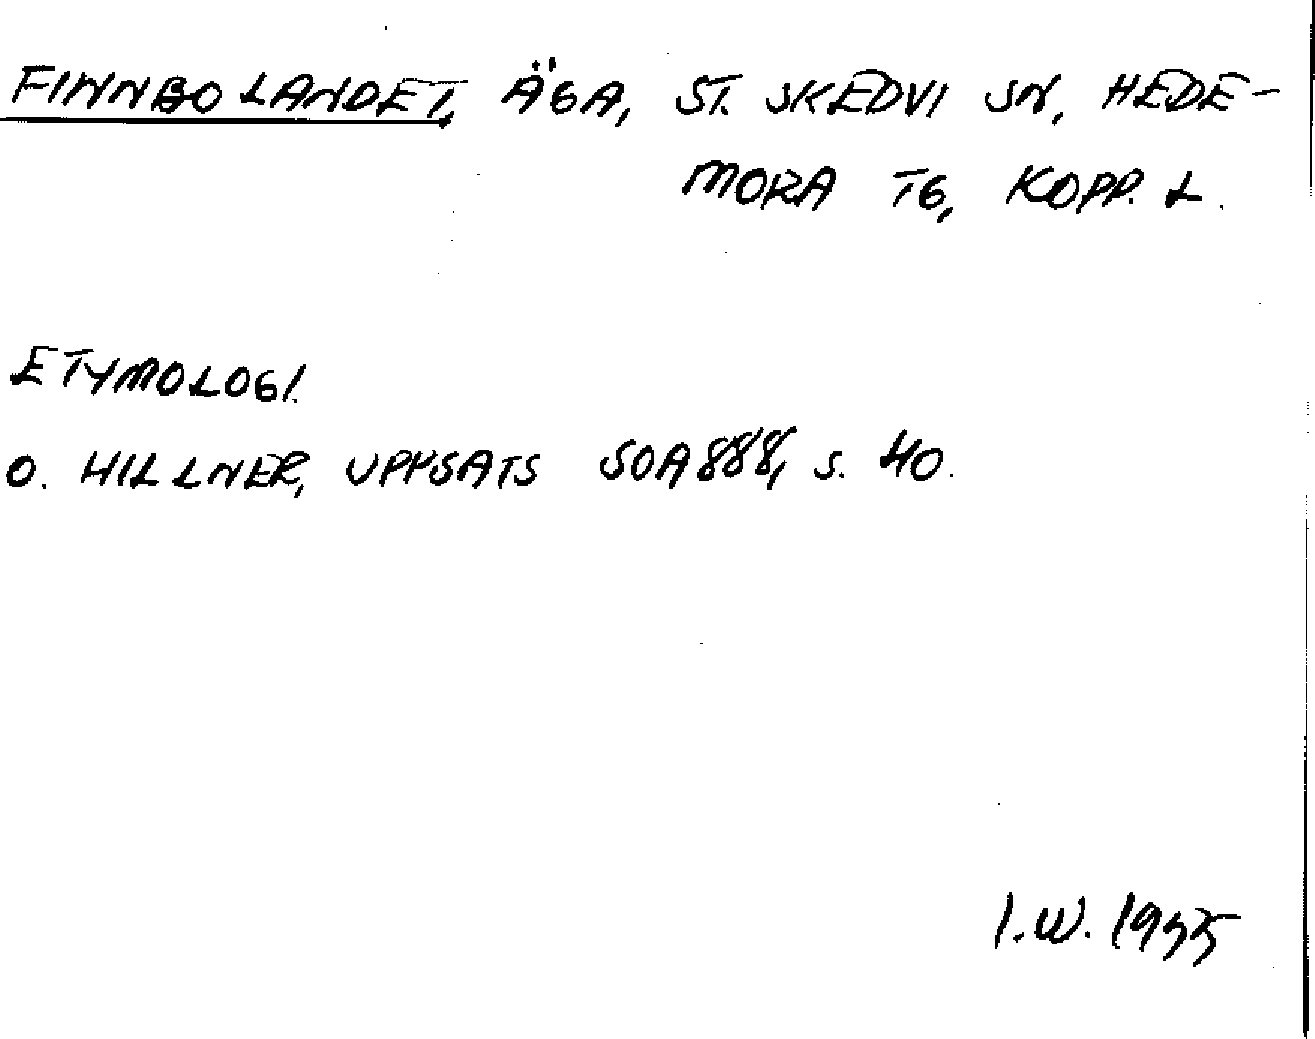 FINNBOLANDET, ÄGA, ST. SKEDVI SN, HEDE-
MORA TG, KOPP. L.
ETYMOLOGI.
O. HILLNER, UPPSATS SOA 888, S. 40.
I.W. 1955